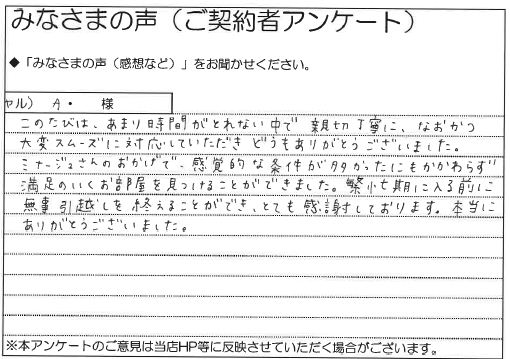 みなさまの声（ご契約者アンケート）
◆「みなさまの声（感想など）」をお聞かせください。
ャル） A・　様
このたびは、あまり時間がとれない中で 親切丁寧に、なおかつ
大変スムーズに対応していただき どうもありがとうございました。
ミナージュさんのおかげで、感覚的な条件が多かったにもかかわらず
満足のいくお部屋を見つけることができました。繁忙期に入る前に
無事引越しを終えることができ、とても感謝しております。本当に
ありがとうございました。
※本アンケートのご意見は当店HP等に反映させていただく場合がございます。